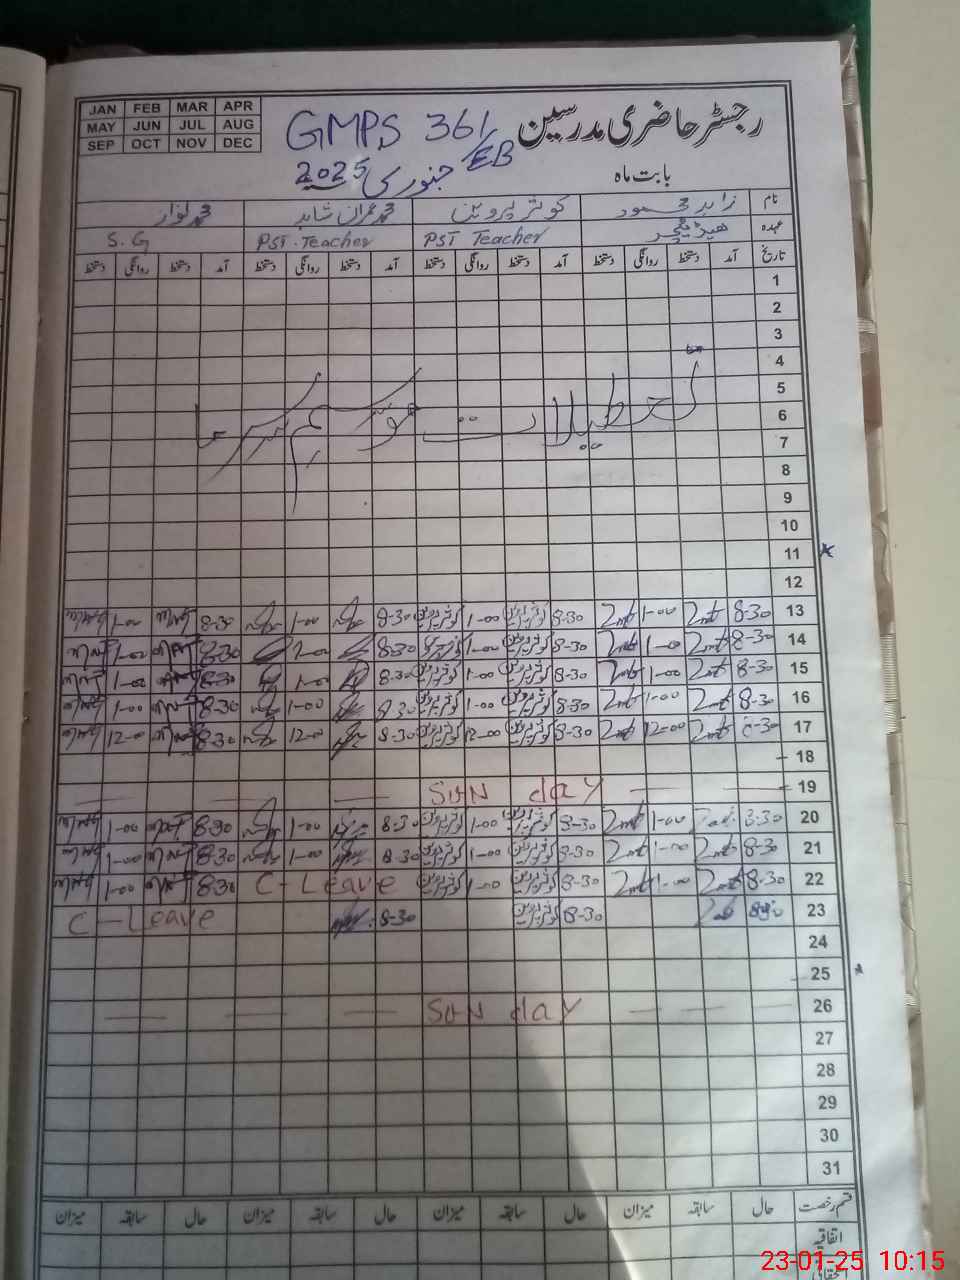 JAN FEB MAR APR
MAY JUN JUL AUG
SEP OCT NOV DEC
رجسٹر حاضری مدرسین
GMPS 361/EB
بابت ماہ جنوری 2025
نام زاہد محمود کوثر پروین محمد عمران شاہد محمد نواز
عہدہ ہیڈ ٹیچر PST Teacher PST-Teacher S.G
تاریخ آمد دستخط روانگی دستخط آمد دستخط روانگی دستخط آمد دستخط روانگی دستخط آمد دستخط روانگی دستخط
1
2
3
4
5
تعطیلات موسم سرما
6
7
8
9
10
11
12
13 8-30 1-00 8-30 کوثر پروین 1-00 کوثر پروین 8-30 1-00 8-30 1-00
14 8-30 1-00 8-30 1-00 8-30 8-30 1-00
15 8-30 1-00 8-30 کوثر پروین 1-00 کوثر پروین 8-30 1-00 8-30 1-00
16 8-30 1-00 8-30 کوثر پروین 1-00 کوثر پروین 8-30 1-00 8-30 1-00
17 8-30 12-00 8-30 کوثر پروین 12-00 کوثر پروین 8-30 12-00 8-30 12-00
18
19 SUN day
20 8-30 1-00 8-30 کوثر پروین 1-00 کوثر پروین 8-30 1-00 8-30 1-00
21 8-30 1-00 8-30 کوثر پروین 1-00 کوثر پروین 8-30 1-00 8-30 1-00
22 8-30 1-00 8-30 کوثر پروین 1-00 کوثر پروین C-Leave 8-30 1-00
23 8-30 8-30 کوثر پروین 8-30 C-Leave
24
25
26 SUN day
27
28
29
30
31
قسم رخصت حال سابقہ میزان حال سابقہ میزان حال سابقہ میزان حال سابقہ میزان
اتفاقیہ
23-01-25 10:15